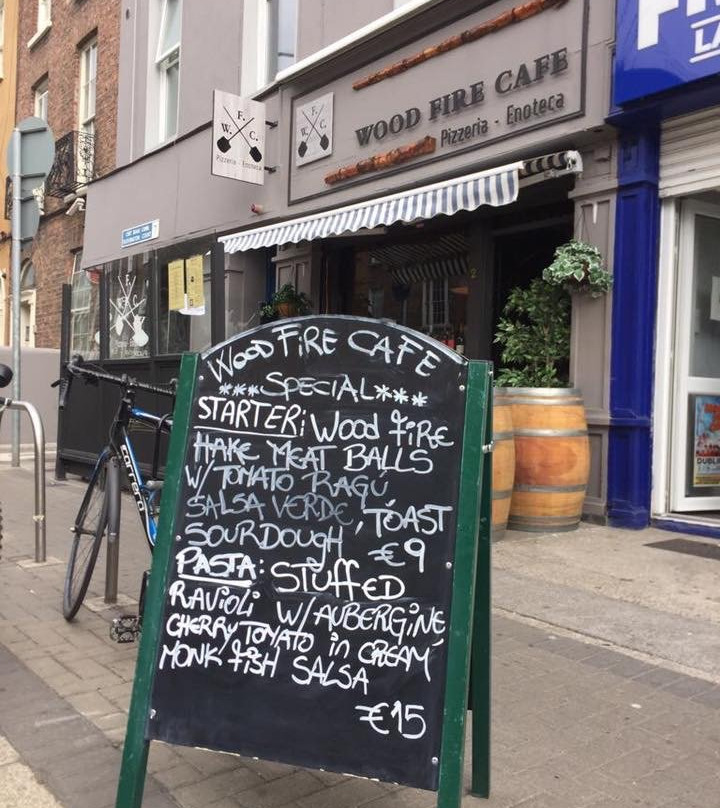 WOOD FIRE CAFE
Pizzeria - Enoteca
F.
W. C.
Pizzeria - Enoteca
F
W C
WOOD FIRE CAFE
***SPECIAL***
STARTER: Wood FiRE
HAKE MEAT BALLS
W/TOMATO RAGÚ
SALSA VERDE, TOAST
SOURDOUGH €9
PASTA: STUffED
RAVIOLI W/AUBERGINE
CHERRY TOMATO in CREAM
MONK fiSH SALSA
€15
carrera